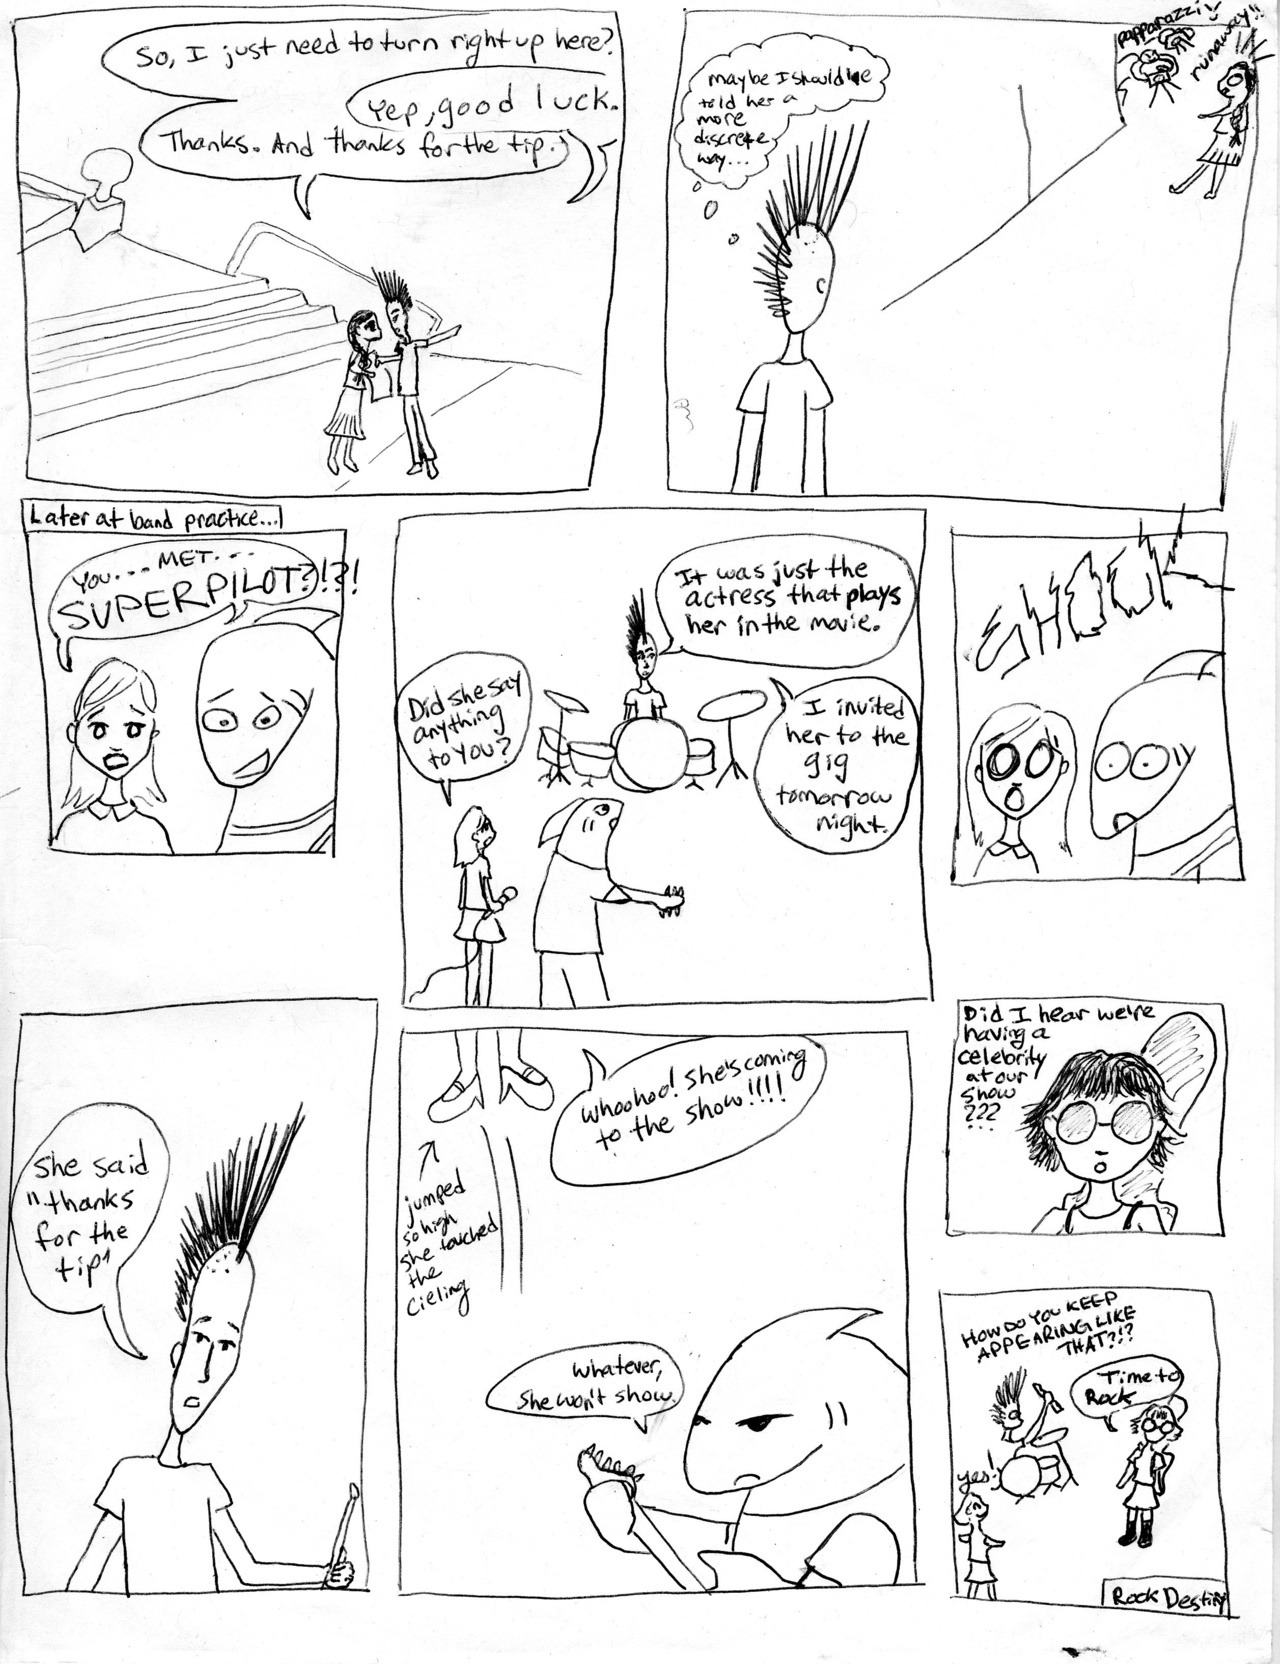 So, I just need to turn right up here?
Yep, good luck.
Thanks. And thanks for the tip.
maybe I should've
told her a
more
discrete
way...
papparazzi!!
runaway!!
Later at band practice...
YOU... MET...
SUPERPILOT?!?!
It was just the
actress that plays
her in the movie.
Did she say
anything
to you?
I invited
her to the
gig
tomorrow
night.
SHOCK
She said
"thanks
for the
tip"
Whoohoo! She's coming
to the show!!!!
jumped
so high
she touched
the
cieling
Whatever,
she won't show.
Did I hear we're
having a
celebrity
at our
show
???
HOW DO YOU KEEP
APPEARING LIKE
THAT?!?
Time to
Rock
yes!
Rock Destiny